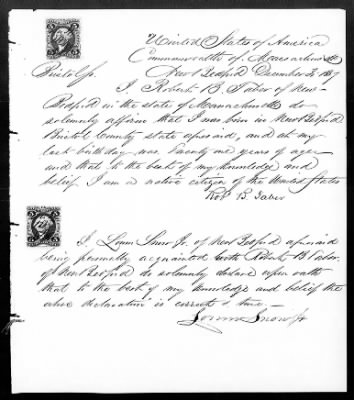 United States of America
Commonwealth of Massachusetts
Bristol Ss. New Bedford December 3, 18
I, Robert B. Taber of New
Bedford in the state of Massachusetts do
solemnly affirm that I was born in New Bedford
Bristol County state aforesaid, and at my
last birthday was twenty one years of age
and that to the best of my knowledge and
belief I am a native citizen of the United States
Robt B. Taber
I, Loum Snow Jr. of New Bedford aforesaid
being personally acquainted with Robert B. Taber
of New Bedford do solemnly declare upon oath
that to the best of my knowledge and belief the
above declaration is correct & true —
Loum Snow Jr